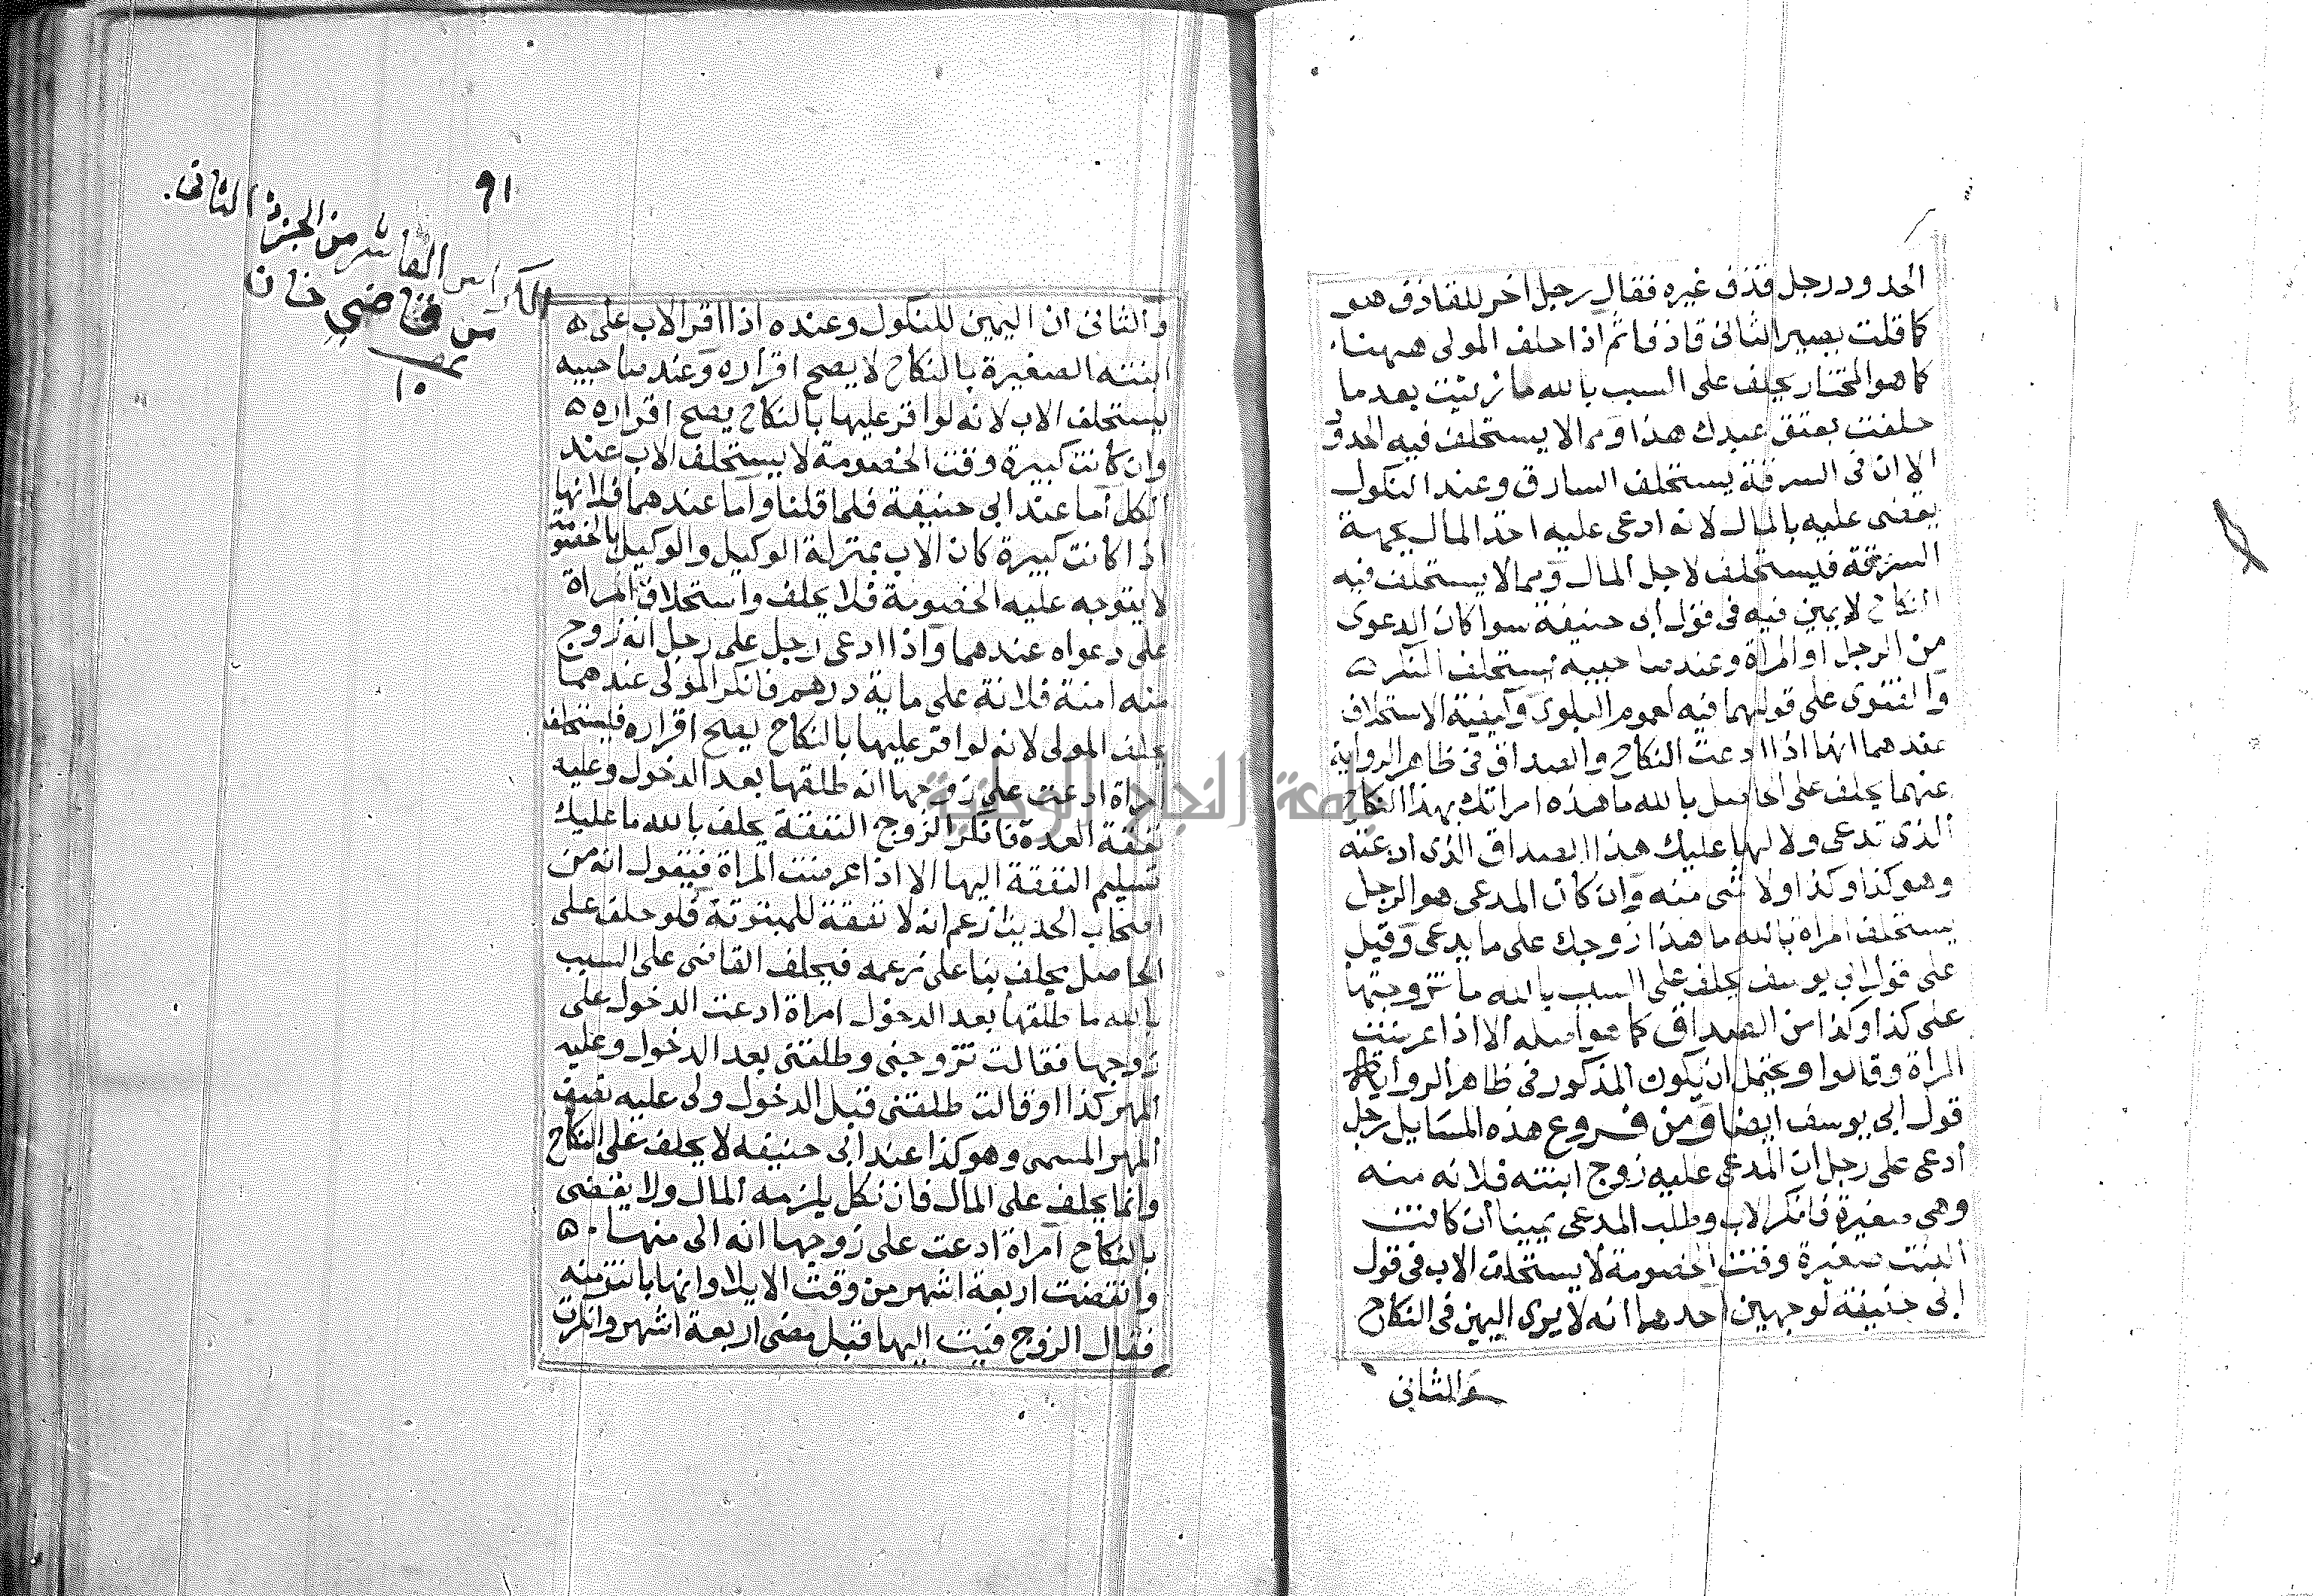 الحدود رجل قذف غيره فقال رجل اخر للقاذف هو
كما قلت يصير الثانى قاذفا ثم اذا حلف المولى ههنا
كما هو المختار يحلف على السبب بالله ما زنيت بعد ما
حلفت بعتق عبدك هذا ومما لا يستحلف فيه الحدود
الا ان فى السرقة يستحلف السارق وعند النكول
يقضى عليه بالمال لانه ادعى عليه اخذ المال بجهة
السرقة فيستحلف لاجل المال ومما لا يستحلف فيه
النكاح لا يمين فيه فى قول ابى حنيفة سوا كان الدعوى
من الرجل او المراة وعند صاحبيه يستحلف المنكر ه
والفتوى على قولهما فيه لعموم البلوى وكيفية الاستحلاف
عندهما انها اذا ادعت النكاح والصداق فى ظاهر الرواية
عنهما يحلف على الحاصل بالله ما هذه امراتك بهذا النكاح
الذى تدعى ولا لها عليك هذا الصداق الذى ادعته
وهو كذا وكذا ولا شى منه وان كان المدعى هو الرجل
يستحلف امراة بالله ما هذا زوجك على ما يدعى وقيل
على قول ابى يوسف يحلف على السبب بالله ما تزوجتها
على كذا وكذا من الصداق كما هو اصله الا اذا عرضت
المراة وقالوا ويحتمل ان يكون المذكور فى ظاهر الرواية
قول ابى يوسف ايضا ومن فروع هذه المسايل رجل
ادعى على رجل ان المدعى عليه زوج ابنته فلانه منه
وهى صغيرة فانكر الاب وطلب المدعى يمينا ان كانت
البنت صغيرة وقت الخصومة لا يستحلف الاب فى قول
ابى حنيفة لوجهين احدهما انه لا يرى اليمين فى النكاح
والثانى
٩١
الكراس العاشر من الجزء الثانى
من قاضي خان
١٠
والثانى ان اليمين للنكول وعنده اذا اقر الاب على ه
ابنته الصغيرة بالنكاح لا يصح اقراره وعند صاحبيه
يستحلف الاب لانه لو اقر عليها بالنكاح يصح اقراره ه
وان كانت كبيرة وقت الخصومة لا يستحلف الاب عند
الكل اما عند ابى حنيفة فلما قلنا واما عندهما فلانها
اذا كانت كبيرة كان الاب بمنزلة الوكيل والوكيل بالخصومة
لا يتوجه عليه الخصومة فلا يحلف واستحلاف المراة
على دعواه عندهما واذا ادعى رجل على رجل انه زوج
منه امته فلانة على ماية درهم فانكر المولى عندهما
يحلف المولى لانه لو اقر عليها بالنكاح يصح اقراره فيستحلف
امراة ادعت على زوجها انه طلقها بعد الدخول وعليه
نفقة العدة فانكر الزوج النفقة يحلف بالله ما عليك
تسليم النفقة اليها الا اذا عرضت المراة فيقول انه من
اصحاب الحديث زعم انه لا نفقة للمبتوتة فلو حلف على
الحاصل يحلف بنا على زعمه فيحلف القاضى على السبب
بالله ما طلقها بعد الدخول امراة ادعت الدخول على
زوجها فقالت تزوجنى وطلقنى بعد الدخول وعليه
المهر كذا او قالت طلقنى قبل الدخول ولى عليه نصف
المهر المسمى وهو كذا عند ابى حنيفه لا يحلف على النكاح
وانما يحلف على المال فان نكل يلزمه المال ولا يقضى
بالنكاح امراة ادعت على زوجها انه الى منها ه
وانقضت اربعة اشهر من وقت الايلا وانها بانت منه
فقال الزوج فيت اليها قبل مضى اربعة اشهر وانكرت
جامعة النجاح الوطنية